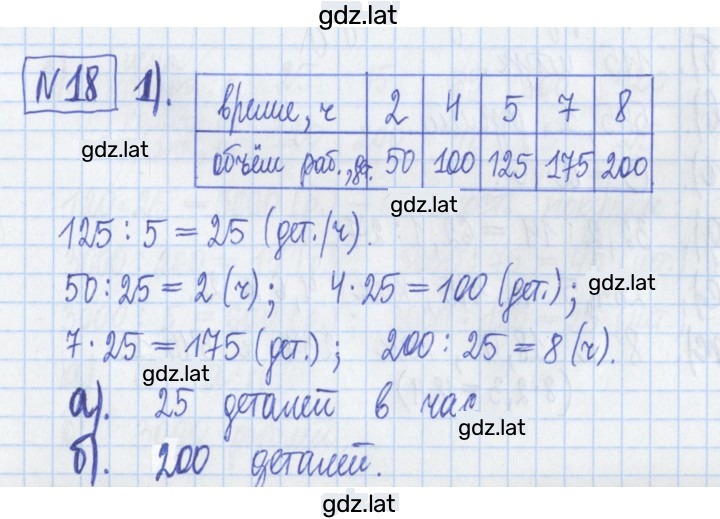 gdz.lat
№18 1).
время, ч 2 4 5 7 8
gdz.lat
объём раб., дет. 50 100 125 175 200
gdz.lat
125 : 5 = 25 (дет./ч).
50 : 25 = 2 (ч); 4 · 25 = 100 (дет.); gdz.lat
7 · 25 = 175 (дет.); 200 : 25 = 8 (ч).
gdz.lat
а). 25 деталей в час
gdz.lat
б). 200 деталей.
gdz.lat